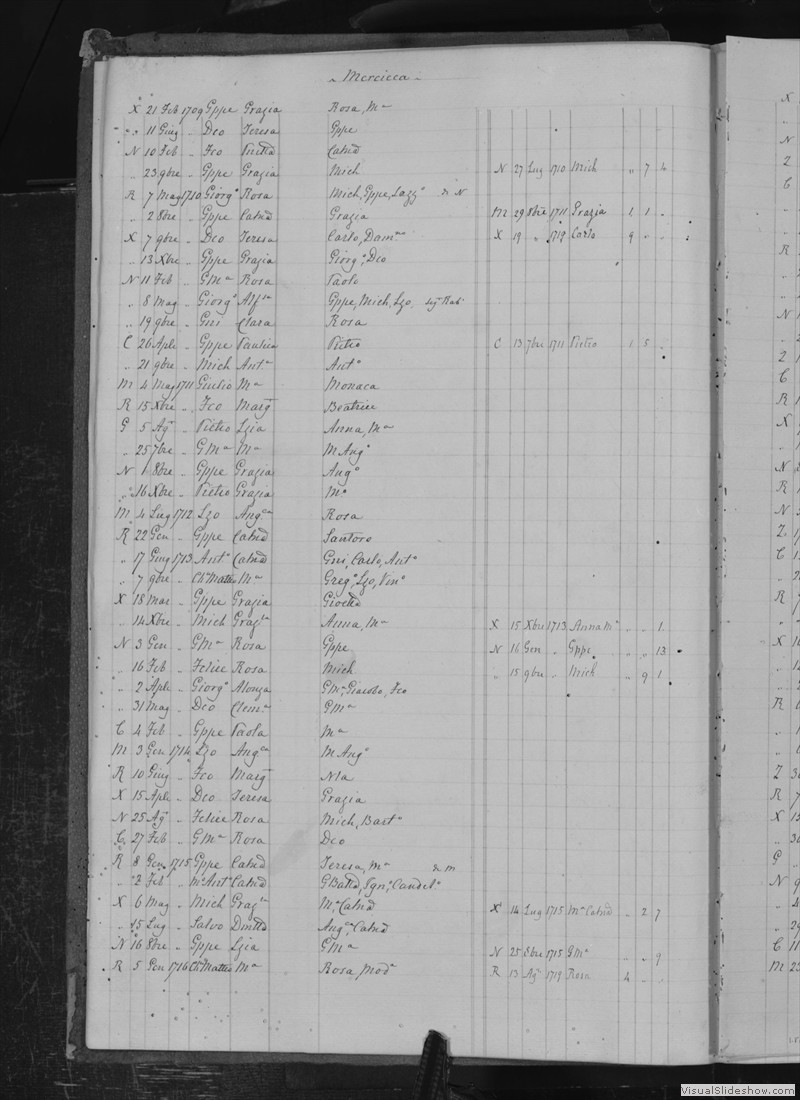 Mercieca
X 21 Feb 1709 Gppe Grazia Rosa, Ma
" 11 Giug " Dco Teresa Gppe
N 10 Feb " Fco Catnd
" 23 9bre " Gppe Grazia Mich N 27 Lug 1710 Mich " 7 4
R 7 Mag 1710 Giorgo Rosa Mich, Gppe, Lazzo di N
" 2 8bre " Gppe Catnd Grazia M 29 8bre 1711 Grazia 1 1 "
X 7 9bre " Dco Teresa Carlo, Damno X 19 " 1719 Carlo 9 " "
" 13 Xbre " Gppe Grazia Giorgo, Dco
N 11 Feb " GMa Rosa Paolo
" 8 Mag " Giorgo Alfsa Gppe, Mich, Lzo
" 19 9bre " Gni Clara Rosa
C 26 Aple " Gppe Paulica Pietro C 13 7bre 1711 Pietro 1 5 "
" 21 9bre " Mich Anta Anto
M 4 Mag 1711 Giulio Ma Monaca
R 15 Xbre " Fco Margt Beatrice
G 5 Ago " Pietro Lzia Anna, Ma
" 25 7bre " GMa Ma M Ango
N 1 8bre " Gppe Grazia Ango
" 16 Xbre " Pietro Grazia Ma
M 4 Lug 1712 Lzo Angca Rosa
R 22 Gen " Gppe Catnd Santoro
" 17 Giug 1713 Anto Catnd Gni, Carlo, Anto
" 7 9bre " Ch Matteo Ma Grego, Lzo, Vino
X 18 Mar " Gppe Grazia Gioctta
" 14 Xbre " Mich Gragta Anna, Ma X 15 Xbre 1713 Anna Ma " " 1
N 3 Gen " GMa Rosa Gppe N 16 Gen " Gppe " " 13
" 16 Feb " Felice Rosa Mich " 15 9bre " Mich " 9 1
" 2 Aple " Giorgo Alonza GMa, Giacobo, Fco
" 31 Mag " Dco Clema GMa
C 4 Feb " Gppe Paola Ma
M 3 Gen 1714 Lzo Angca M Ango
R 10 Giug " Fco Margt Nla
X 15 Aple " Dco Teresa Grazia
N 25 Ago " Felice Rosa Mich, Barto
C 27 Feb " GMa Rosa Dco
R 8 Gen 1715 Gppe Catnd Teresa, Ma di M
" 2 Feb " Mo Anto Catnd GBatta, Igno, Candelo
X 6 Mag " Mich Gragta Ma, Catnd X 14 Lug 1715 Ma Catnd " 2 7
" 15 Lug " Salvo Dmtta Anga, Catnd
N 16 8bre " Gppe Lzia GMa N 25 8bre 1715 GMa " " 9
R 5 Gen 1716 Ch Matteo Ma Rosa, Moda R 13 Ago 1719 Rosa 4 " "
VisualSlideshow.com